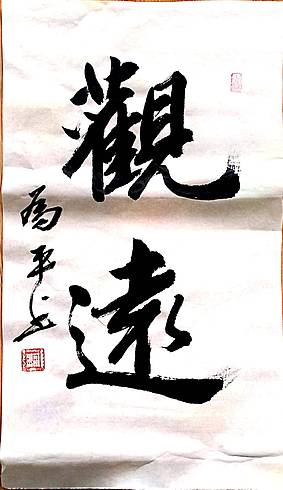 觀遠
為平